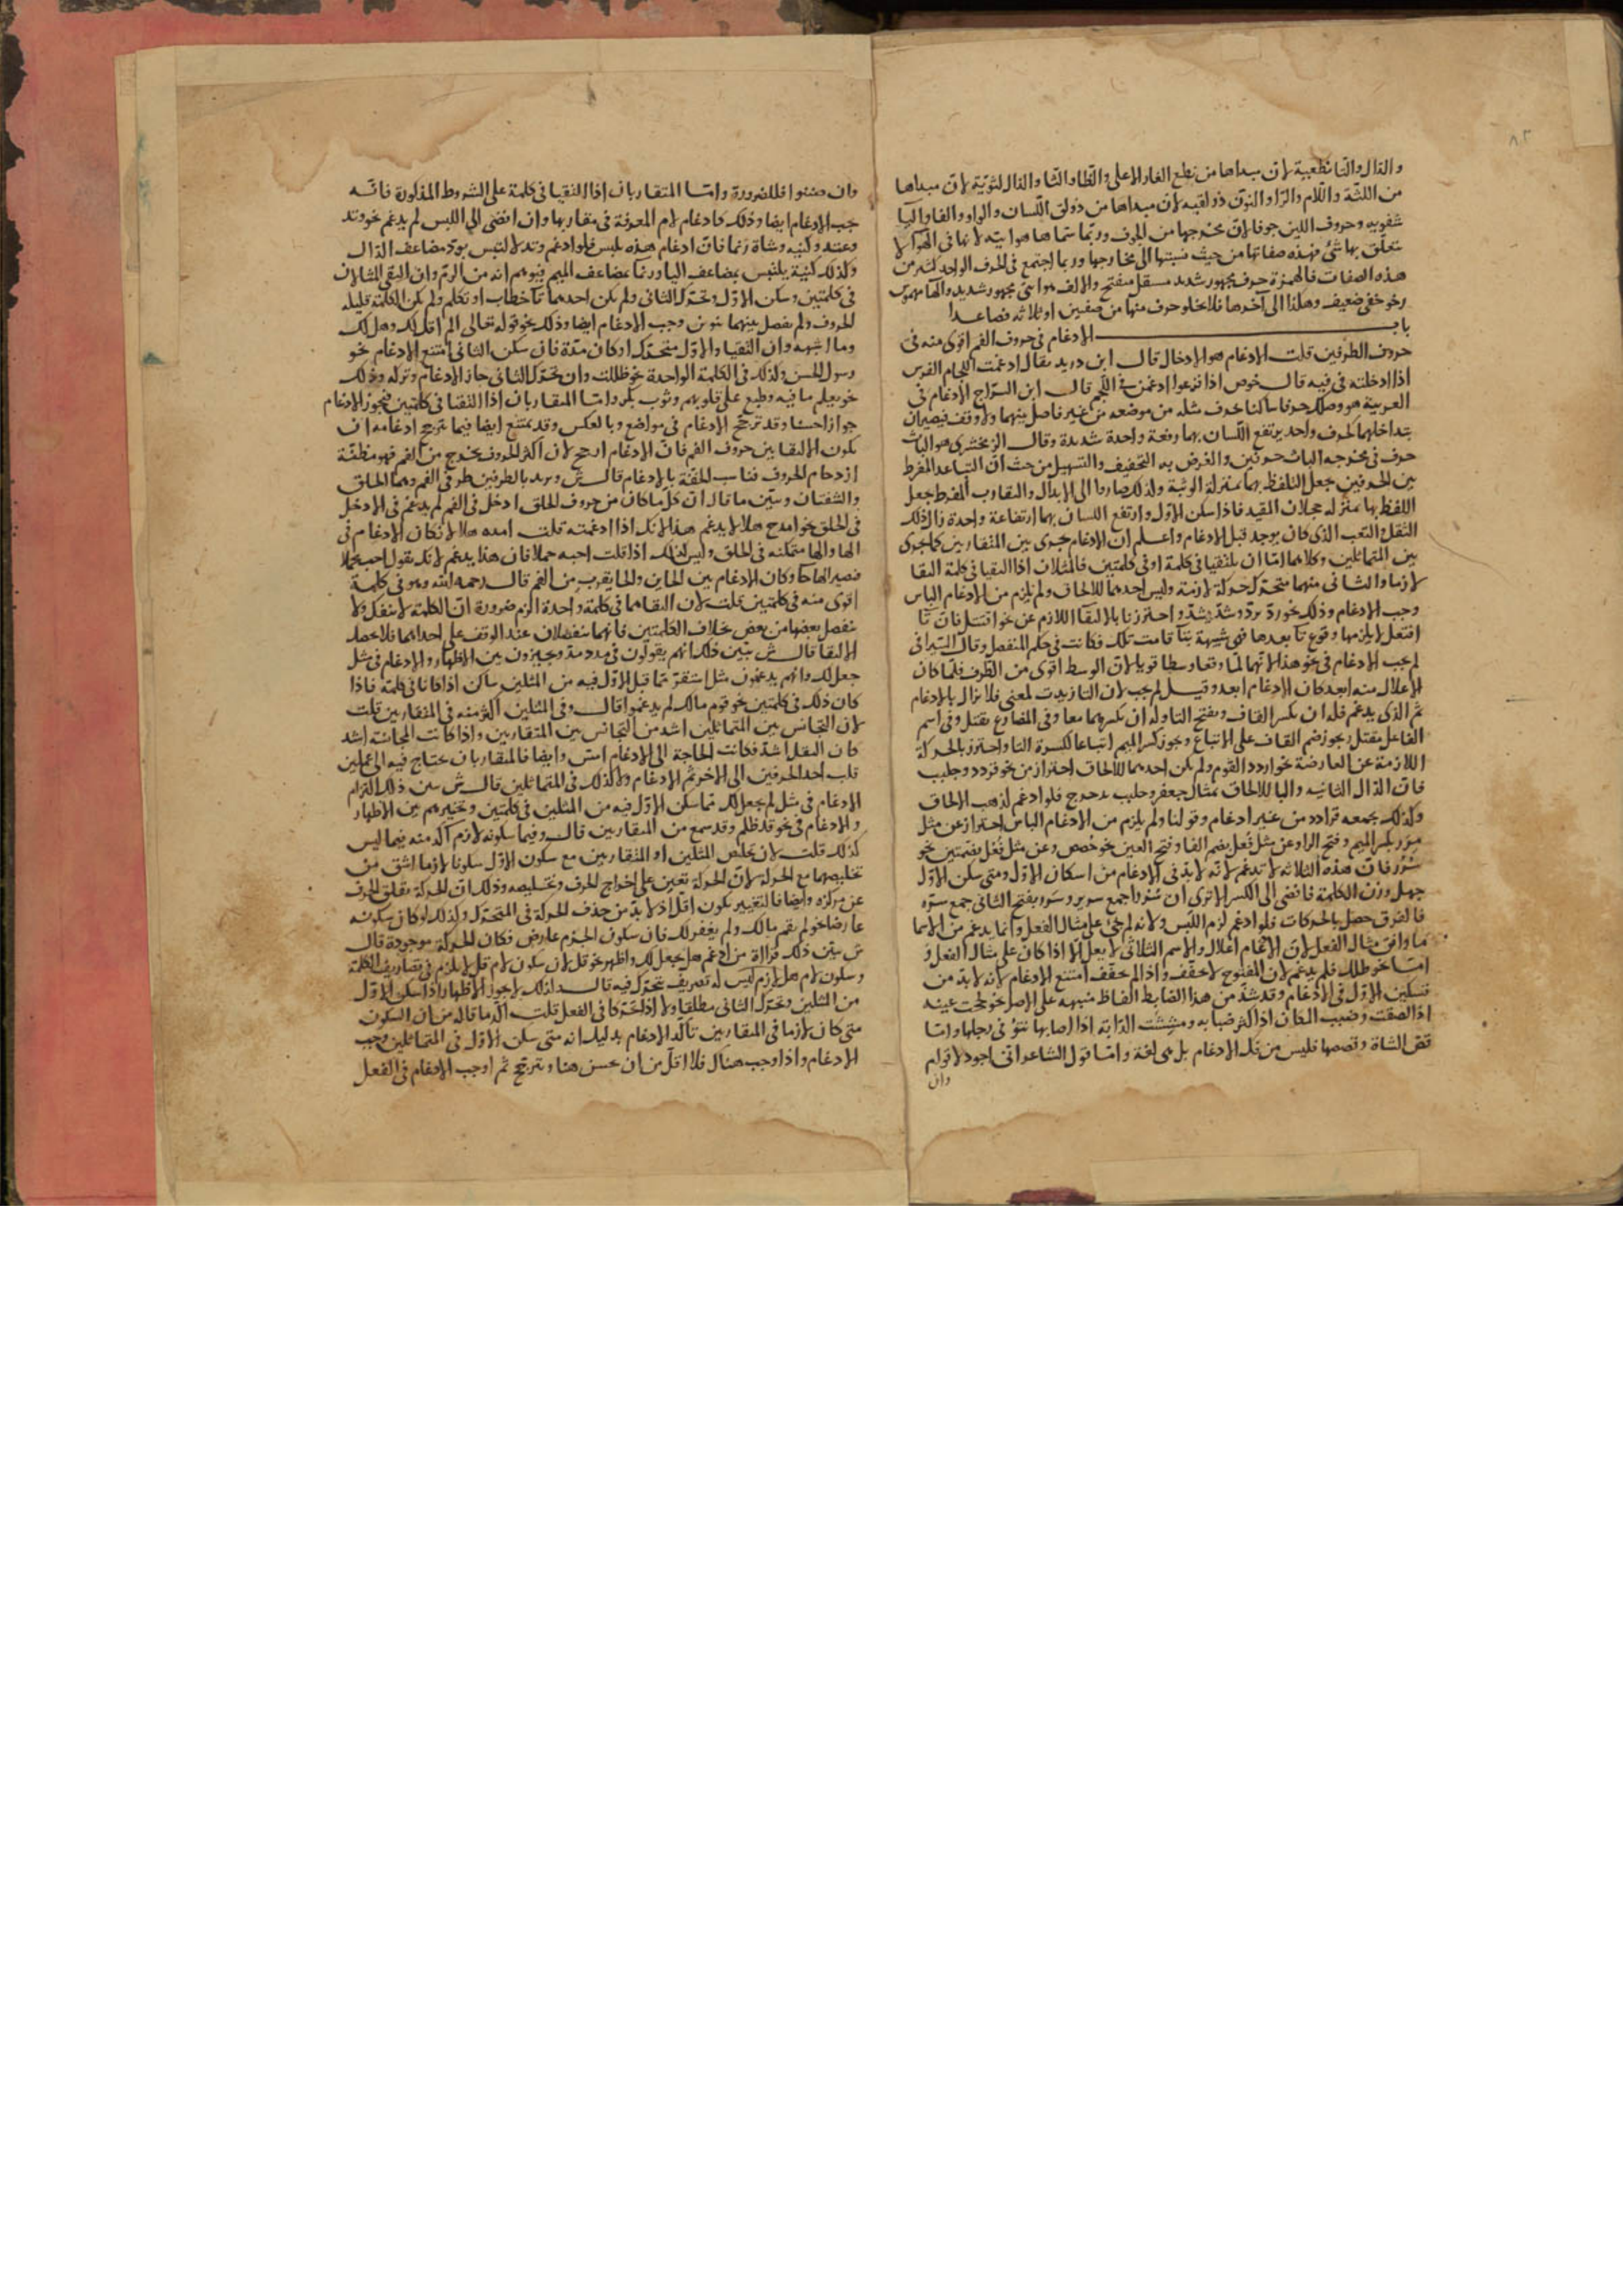 ٨٣
والدال والتا نطعية لان مبداها من نطع الغار الاعلى والظا والثا والذال لثوية لان مبداها
من اللثة واللام والرا والنون ذولقيه لان مبداها من ذولق اللسان والواو والفا والبا
شفويه وحروف اللين جوفا لان مخرجها من الجوف وربما سماها هوائيه لانها فى الهوا لا
يتعلق بها شئ فهذه صفاتها من حيث نسبتها الى مخارجها وربما اجتمع فى الحرف الواحد اكثر من
هذه الصفات فالهمزة حرف مجهور شديد مستفل منفتح والالف هوائى مجهور شديد والها مهموس
رخو خفى ضعيف وهكذا الى آخرها فلا يخلو حرف منها من صفتين او ثلاثه فصاعدا
باب الادغام فى حروف الفم اقوى منه فى
حروف الطرفين قلت الادغام هو الادخال قال ابن دريد يقال ادغمت اللجام الفرس
اذا ادخلته فى فيه قال خوص اذا فزعوا ادغمن فى اللجم قال ابن السراج الادغام فى
العربية هو وصلك حرفا ساكنا بحرف مثله من موضعه من غير فاصل بينهما ولا وقف فيصيران
بتداخلهما كحرف واحد يرتفع اللسان بهما رفعة واحدة شديدة وقال الزمخشرى هو الباث
حرف فى مخرجه الباث حرفين والغرض به التخفيف والتسهيل من حيث ان التباعد المفرط
بين الحرفين جعل التلفظ بهما بمنزلة الوثبة ولذلك صاروا الى الابدال والتقارب المفرط جعل
اللفظ بها بمنزله حجلان المقيد فاذا سكن الاول وارتفع اللسان بهما ارتفاعة واحدة زال ذلك
الثقل والتعب الذى كان يوجد قبل الادغام واعلم ان الادغام جرى بين المتقاربين كما جرى
بين المتماثلين وكلاهما اما ان يلتقيا فى كلمة او فى كلمتين فالمثلان اذا التقيا فى كلمة التقا
لازما والثانى منهما متحرك حركة لازمة وليس احدهما للالحاق ولم يلزم من الادغام الباس
وجب الادغام وذلك نحو ردّ يردّ وشدّ يشدّ واحترزنا بالالتقا اللازم عن نحو اقتتل فان تا
افتعل لا يلزمها وقوع تا بعدها فهى شبيهة بتا قامت تلك فكانت فى حكم المنفصل وقال السيرافى
لم يجب الادغام فى نحو هذا لانهما لما وقعا وسطا قويا لان الوسط اقوى من الطرف فلما كان
الاعلال منه ابعد كان الادغام ابعد وقيل لم يجب لان التا زيدت لمعنى فلا تزال بالادغام
ثم الذى يدغم فله ان يكسر القاف ويفتح التا وله ان يكسرهما معا وفى المضارع يقتل وفى اسم
الفاعل مقتل ويجوز ضم القاف على الاتباع ويجوز كسر الميم اتباعا لكسرة التا واحترز بالحركة
اللازمة عن العارضة نحو اردد القوم ولم يكن احدهما للالحاق احتراز من نحو قردد وجلبب
فان الدال الثانيه والبا للالحاق بمثال جعفر وجلبب بدحرج فلو ادغم لذهب الالحاق
وكذلك بجمعه قرادد من غير ادغام وقولنا ولم يلزم من الادغام الباس احتراز عن مثل
مرر بكسر الميم وفتح الرا وعن مثل فُعل بضم الفا وفتح العين نحو خُصص وعن مثل فُعُل بضمتين نحو
سُرُر فان هذه الثلاثه لا تدغم لانه لابد فى الادغام من اسكان الاول ومتى سكن الاول
جهل وزن الكلمة فافضى الى الكسر الا ترى ان سُررا جمع سرير وسُررا بفتح الثانى جمع سرّه
فالفرق حصل بالحركات فلو ادغم لزم اللبس ولانه لم يجئ على مثال الفعل وانما يدغم من الاسما
ما وافق مثال الفعل لان الادغام اعلال والاسم الثلاثى لا يعل الا اذا كان على مثال الفعل و
امتنا نحو طلل فلم يدغم لان المفتوح لا يخفف واذا لم يخفف امتنع الادغام لانه لابد من
تسكين الاول فى الادغام وقد شذ من هذا الضابط الفاظ منبهه على الاصل نحو لححت عينه
اذا لصقت وضبب المكان اذا كثر ضبابه ومششت الدابة اذا اصابها نتؤ فى رجلها واما
قص الشاة وقصصها فليس من فك الادغام بل هى لغة واما قول الشاعر انى اجود لاقوام
وان
وان ضننوا فللضرورة واما المتقاربان اذا التقيا فى كلمة على الشروط المذكورة فانه
يجب الادغام ايضا وذلك كادغام لام المعرفة فى مقاربها وان افضى الى اللبس لم يدغم نحو وتد
وعتد وكنيه وشاة زنما فان ادغام هذه يلبس فلو ادغم وتد لالتبس بودّ مضاعف الدال
وكذلك كنية يلتبس بمضاعف اليا وزنما بمضاعف الميم فيوهم انه من الزم وان التقى المثلان
فى كلمتين وسكن الاول وتحرك الثانى ولم يكن احدهما تا خطاب او تكلم ولم يكن الكلمة قليله
الحروف ولم يفصل بينهما تنوين وجب الادغام ايضا وذلك نحو قوله تعالى الم اقل لك وهل لك
وما اشبهه وان التقيا والاول متحرك او كان مدّة فان سكن الثانى امتنع الادغام نحو
رسول الحسن وكذلك فى الكلمة الواحدة نحو ظللت وان تحرك الثانى جاز الادغام وتركه وذلك
نحو يعلم ما فيه وطبع على قلوبهم وثوب بكر واما المتقاربان اذا التقتا فى كلمتين فيجوز الادغام
جوازا حسنا وقد ترجح الادغام فى مواضع وبالعكس وقد يمتنع ايضا فيما يترجح ادغامه ان
يكون الالتقا بين حروف الفم فان الادغام ارجح لان اكثر الحروف يخرج من الفم فهو مظنّة
ازدحام الحروف فناسب الخفّة بالادغام قال ش ويريد بالطرفين طرفى الفم وهما الحلق
والشفتان وسبين ما قال ان كل ما كان من حروف الحلق ادخل فى الفم لم يدغم فى الادخل
فى الحلق نحو امدح هلالا لا يدغم هذا لانك اذا ادغمته قلت امده هلالا فكان الادغام فى
الها والها متمكنه فى الحلق وليس كذلك اذا قلت اجبه حملا فان هذا يدغم لانك تقول اجبحملا
فصير الها حا وكان الادغام بين الحاين والحا يقرب من الفم قال رحمه الله وهو فى كلمة
اقوى منه فى كلمتين قلت لان التقاهما فى كلمة واحدة الزم ضرورة ان الكلمة لا ينفك ولا
ينفصل بعضها من بعض بخلاف الكلمتين فانهما ينفصلان عند الوقف على احداهما فلا يحصل
الالتقا قال ش يبين ذلك انهم يقولون فى مدد مدّ ويجيزون بين الاظهار والادغام فى مثل
جعل لك وانهم يدغمون مثل استقرّ مما قبل الاول فيه من المثلين ساكن اذا كانا فى كلمة فاذا
كان ذلك فى كلمتين نحو قوم مالك لم يدغموا قال وفى المثلين اكثر منه فى المتقاربين قلت
لان التجانس بين المتماثلين اشد من التجانس بين المتقاربين واذا كانت المجانسة اشد
كان الثقل اشد فكانت الحاجة الى الادغام امسّ وايضا فالمتقاربان يحتاج فيه الى عملين
قلب احد الحرفين الى الاخر ثم الادغام ولا كذلك فى المتماثلين قال ش يبين ذلك التزام
الادغام فى مثل لم يجعل لك مما سكن الاول فيه من المثلين فى كلمتين وتخييرهم بين الاظهار
والادغام فى نحو قد ظلم وقد سمع من المتقاربين قال وفيما سكونه لازم آكد منه فيما ليس
كذلك قلت لان تخلص المثلين او المتقاربين مع سكون الاول سكونا لازما اشق من
تخليصهما مع الحركة لان الحركة تعين على اخراج الحرف وتخليصه وذلك ان الحركة تقلق الحرف
عن مركزه وايضا فالتغيير يكون اقل اذ لابد من حذف الحركة فى المتحرك وكذلك لو كان سكونه
عارضا نحو لم يقم مالك ولم يغفر لك فان سكون الجزم عارض فكان الحركة موجودة قال
ش يبين ذلك قراءة من ادغم هل جعل لك واظهر نحو قل لان سكون لام قل لا يلزم فى تصاريف الكلمة
وسكون لام هل لازم ليس له تصريف تتحرك فيه قال ولذلك لا يجوز الاظهار اذا سكن الاول
من المثلين وتحرك الثانى مطلقا ولا اذا تحركا فى الفعل قلت اكد ما قاله من ان السكون
متى كان لازما فى المتقاربين تأكد الادغام بدليل انه متى سكن الاول فى المتماثلين وجب
الادغام واذا وجب هناك فلا اقل من ان يحسن هنا ويترجح ثم اوجب الادغام فى الفعل